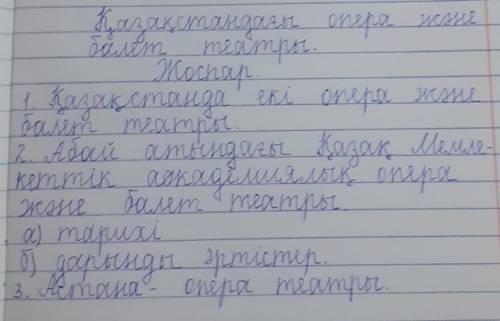 Қазақстандағы опера және
балет театры.
Жоспар.
1. Қазақстанда екі опера және
балет театры.
2. Абай атындағы Қазақ Мемле-
кеттік аакадемиялық опера
және балет театры.
а) тарихі
б) дарынды әртістер.
3. Астана - опера театры.